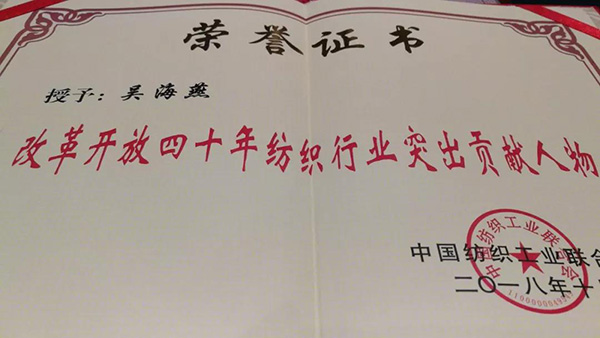 荣誉证书
授予：吴海燕
改革开放四十年纺织行业突出贡献人物
中国纺织工业联合
二〇一八年十
中国纺织工业联合会